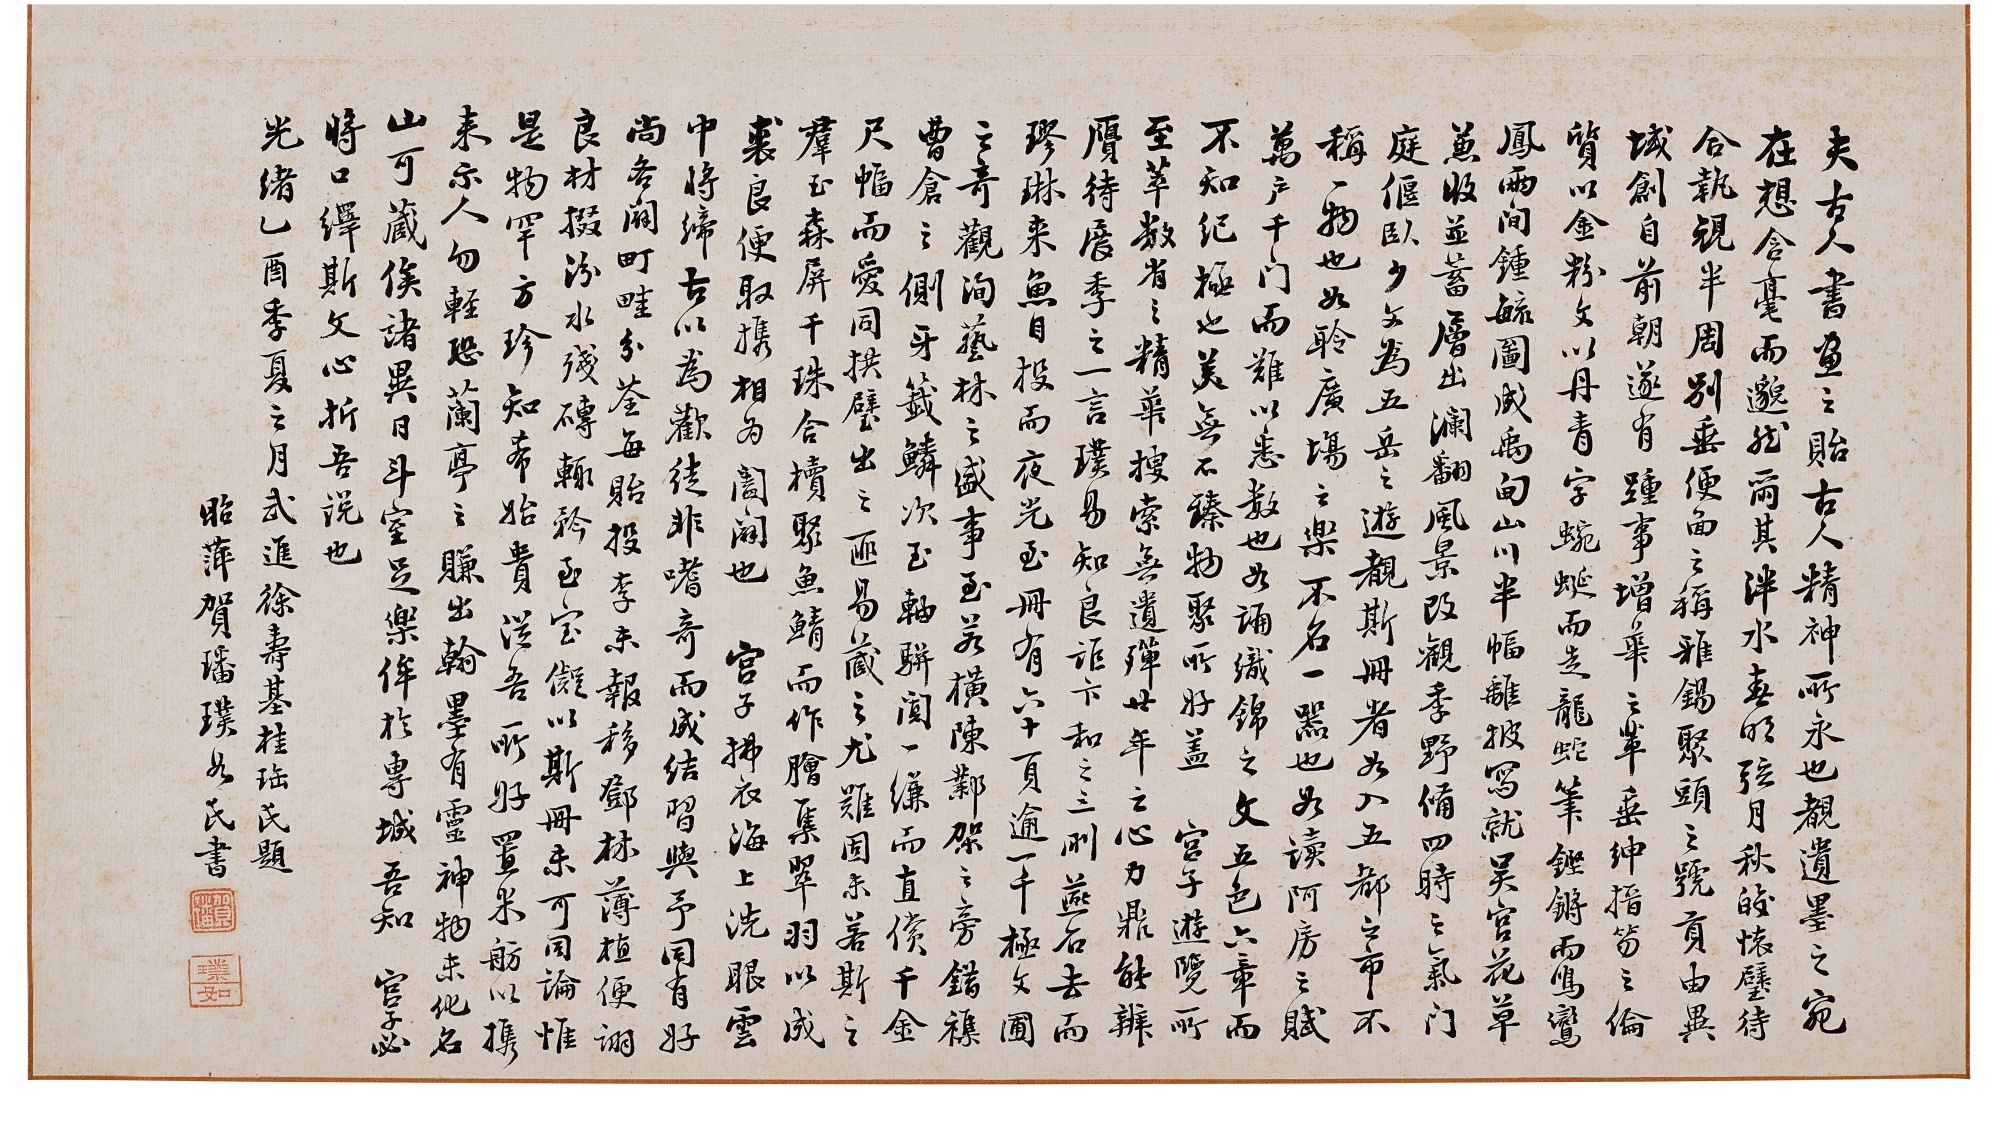 夫古人書畫之貽古人精神所永也覩遺墨之宛
在想含毫而邈然爾其泮水春明弦月秋皎懷璧待
合執規半周別垂便面之稱雅錫聚頭之號貢由異
域創自前朝遂有踵事增華之輩垂紳搢笏之倫
質以金粉文以丹青字蜿蜒而走龍蛇筆鏗鏘而鳴鸞
鳳兩間鍾毓圖成禹甸山川半幅離披寫就吴宫花草
兼收並蓄層出瀾翻風景改觀季野備四時之氣門
庭偃臥少文為五岳之遊觀斯冊者如入五都之市不
稱一物也如聆廣場之樂不名一器也如讀阿房之賦
萬户千門而難以悉数也如誦織錦之文五色六章而
不知紀極也美無不臻物聚所好蓋 宫子遊覽所
至萃数省之精華搜索無遺殫廿年之心力鼎能辨
贗待展季之一言璞易知良詎卞和之三刖燕石去而
璆琳来魚目投而夜光至冊有六十頁逾一千極文圃
之奇觀洵藝林之盛事至若横陳鄴架之旁錯襍
曹倉之側牙籤鱗次玉軸駢闐一縑而直償千金
尺幅而愛同拱璧出之匪易藏之尤難固未若斯之
羣玉森屏千珠合櫝聚魚鯖而作膾集翠羽以成
裘良便取携相为誾闠也 宫子拂衣海上洗眼雲
中將締古以為歡徒非嗜奇而成結習與予同有好
尚各闢町畦分荃每貽投李未報移鄧林薄植便詡
良材掇汾水殘磚輒矜至宝儗以斯冊未可同論惟
是物罕方珍知希始貴從吾所好置米舫以携
来示人勿輕恐蘭亭之賺出翰墨有靈神物未化名
山可藏俟諸異日斗室足樂侔於專城吾知 宫子必
時口繹斯文心折吾説也
光緒乙酉季夏之月武進徐壽基桂珤氏題
昭萍賀璠璞如氏書
賀璠
璞如